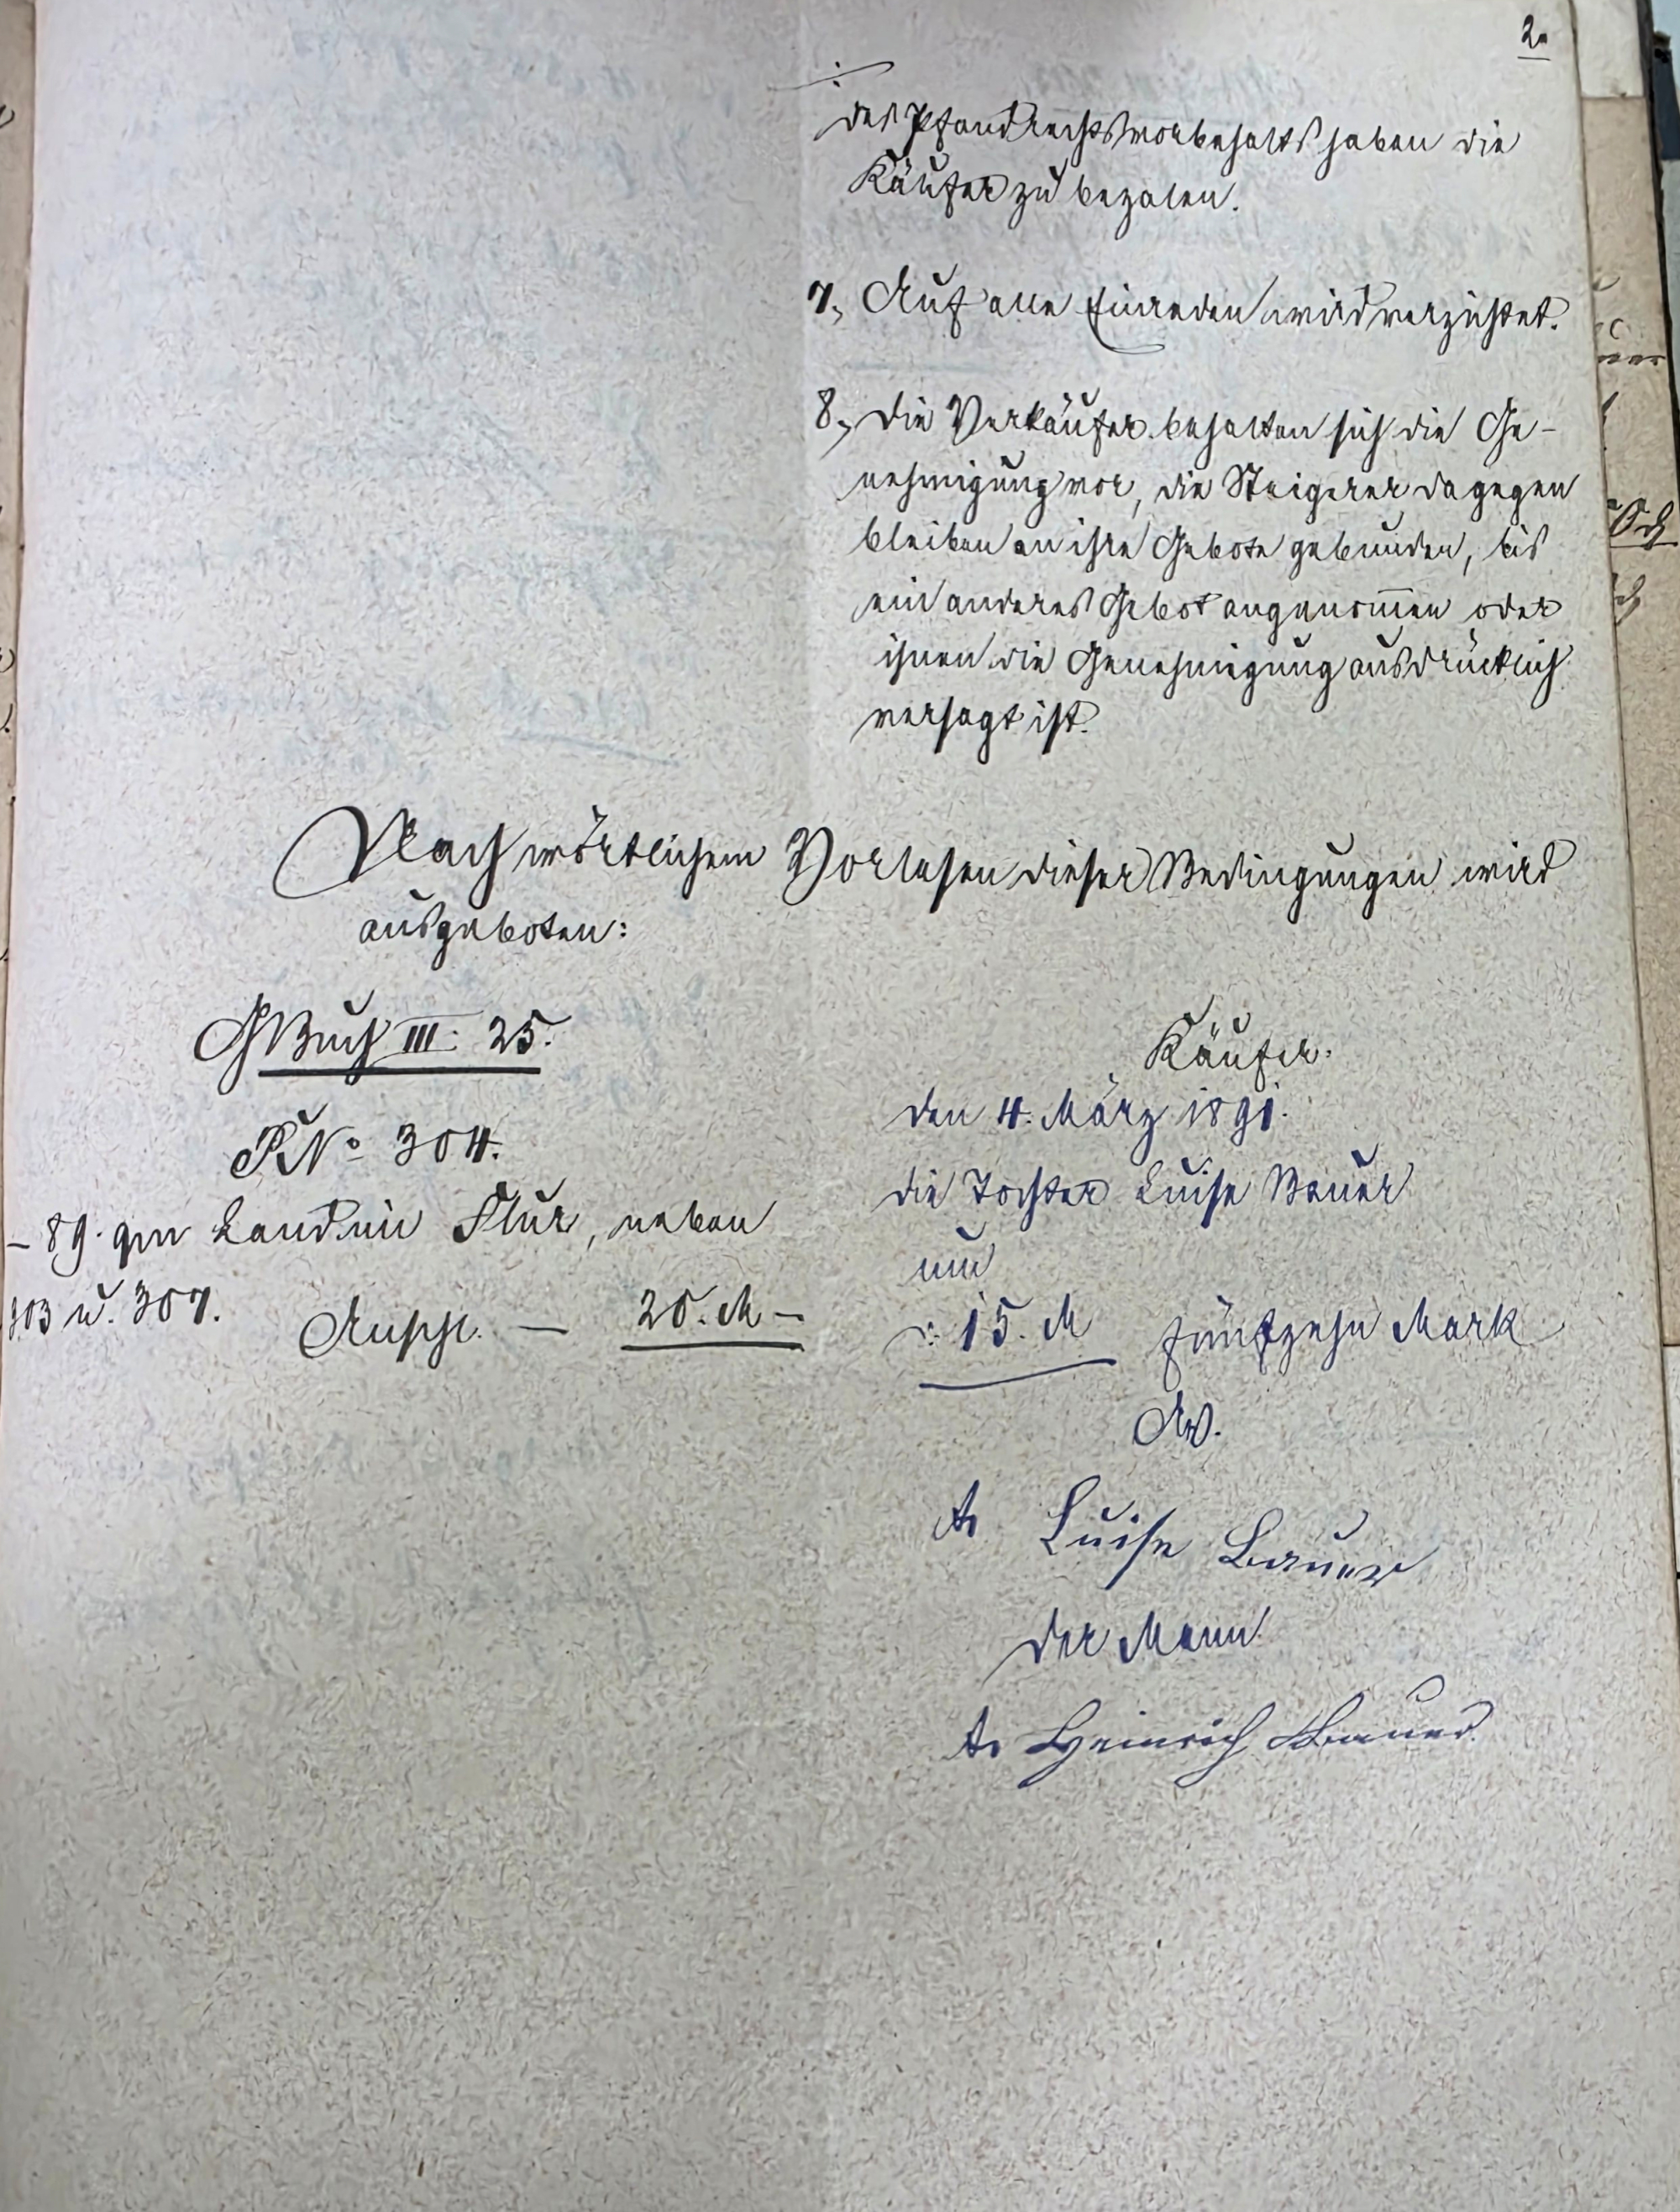 2.
des Pfandrechtsvorbehalts haben die
Käufer zu bezalen.
7, Auf alle Einreden wird verzichtet.
8, Die Verkäufer behalten sich die Ge-
nehmigung vor, die Steigerer dagegen
bleiben an ihre Gebote gebunden, bis
ein anderes Gebot angenom̄en oder
ihnen die Genehmigung ausdrücklich
versagt ist.
Nach wörtlichem Vorlesen dieser Bedingungen wird
ausgeboten:
GBuch III. 25.
PNo 304.
- 89. qm Land im Flur, neben
303 u. 307.
Anschl. — 20. M -
Käufer.
den 4. März 1891.
die Tochter Luise Bauer
um
: 15. M fünfzehn Mark
Luise Bauer
der Mann
Heinrich Bauer